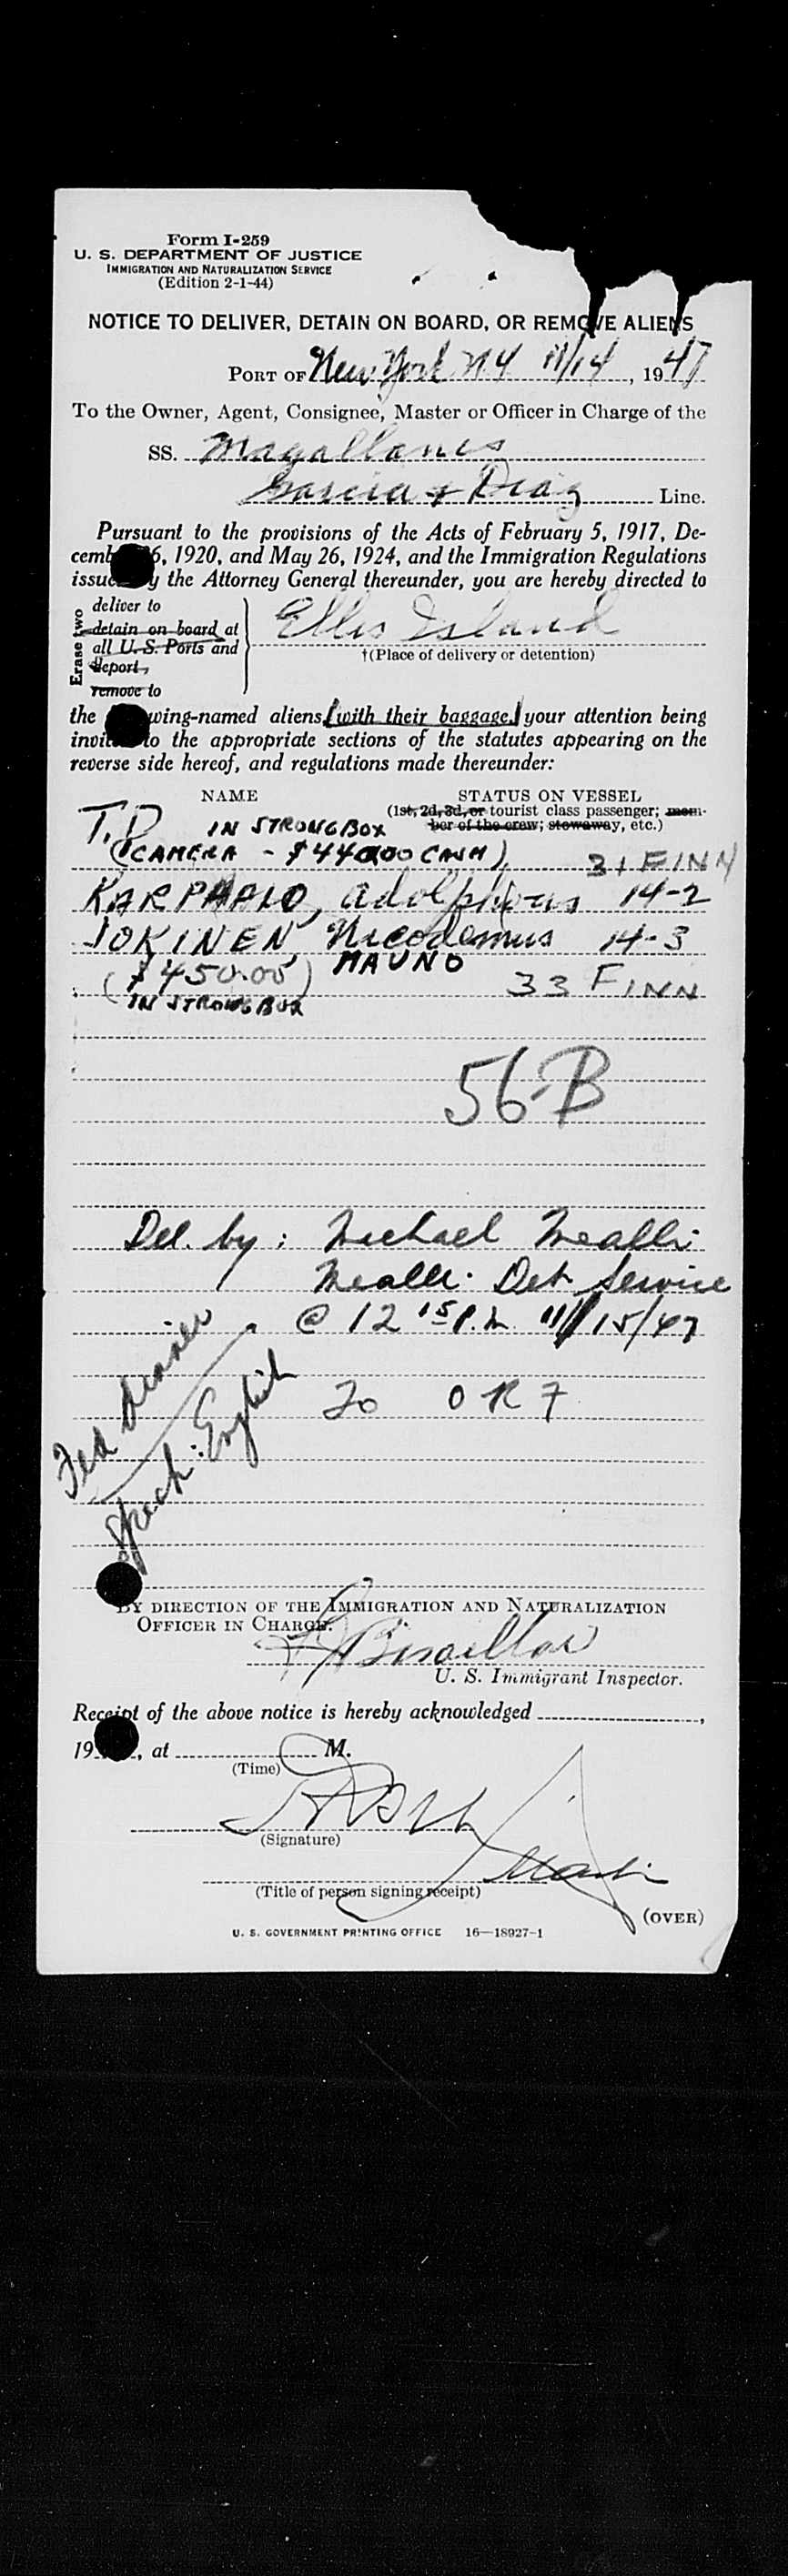 Form I-259
U. S. DEPARTMENT OF JUSTICE
IMMIGRATION AND NATURALIZATION SERVICE
(Edition 2-1-44)
NOTICE TO DELIVER, DETAIN ON BOARD, OR REMOVE ALIENS
PORT OF New York N Y 11/14, 1947
To the Owner, Agent, Consignee, Master or Officer in Charge of the
SS. Magallanes
Garcia & Diaz Line.
Pursuant to the provisions of the Acts of February 5, 1917, De-
cemb 6, 1920, and May 26, 1924, and the Immigration Regulations
issu y the Attorney General thereunder, you are hereby directed to
Erase two
deliver to
detain on board at
all U. S. Ports and
deport,
remove to
Ellis Island
†(Place of delivery or detention)
the wing-named aliens (with their baggage) your attention being
invit to the appropriate sections of the statutes appearing on the
reverse side hereof, and regulations made thereunder:
NAME STATUS ON VESSEL
(1st, 2d, 3d, or tourist class passenger; mem-
ber of the crew; stowaway, etc.)
T.D IN STRONGBOX
(CAMERA - $44000 CASH) 31 FINN
Adolphus 14-2
JOKINEN, Nicodemus 14-3
MAUNO
($450.00) 33 FINN
IN STRONGBOX
56-B
Del. by: Michael Mealli
Mealli Det. Service
@ 12 15 P.M 11/15/47
Fed dinner
Speech: English
To O R 7
BY DIRECTION OF THE IMMIGRATION AND NATURALIZATION
OFFICER IN CHARGE.
U. S. Immigrant Inspector.
Receipt of the above notice is hereby acknowledged ,
19 , at M.
(Time)
(Signature)
(Title of person signing receipt)
(OVER)
U. S. GOVERNMENT PRINTING OFFICE 16—18927-1